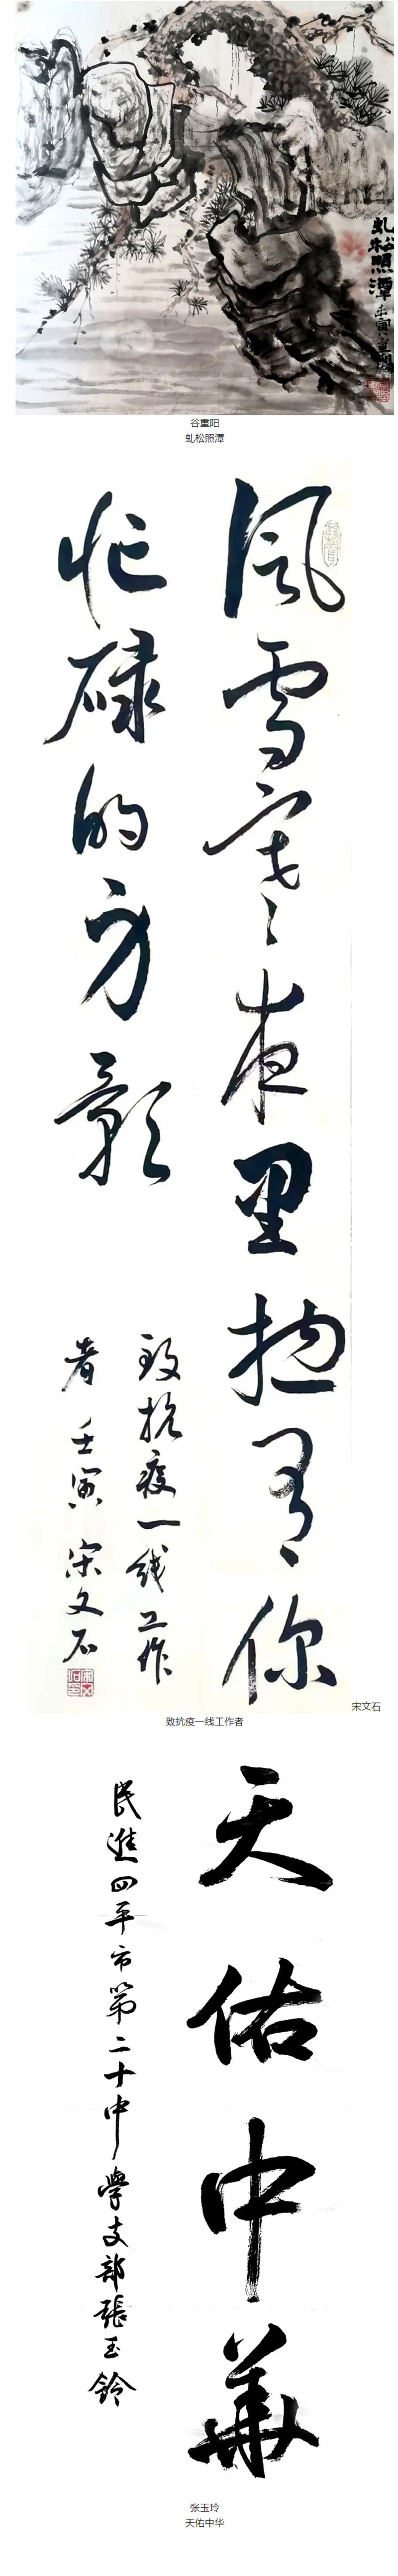 虬松照潭
壬寅重陽
谷重阳
虬松照潭
风雪寒夜里抱有你
忙碌的身影
致抗疫一线工作
者 壬寅 宋文石
宋文石
致抗疫一线工作者
天佑中華
民進四平市第二十中學支部張玉鈴
张玉玲
天佑中华